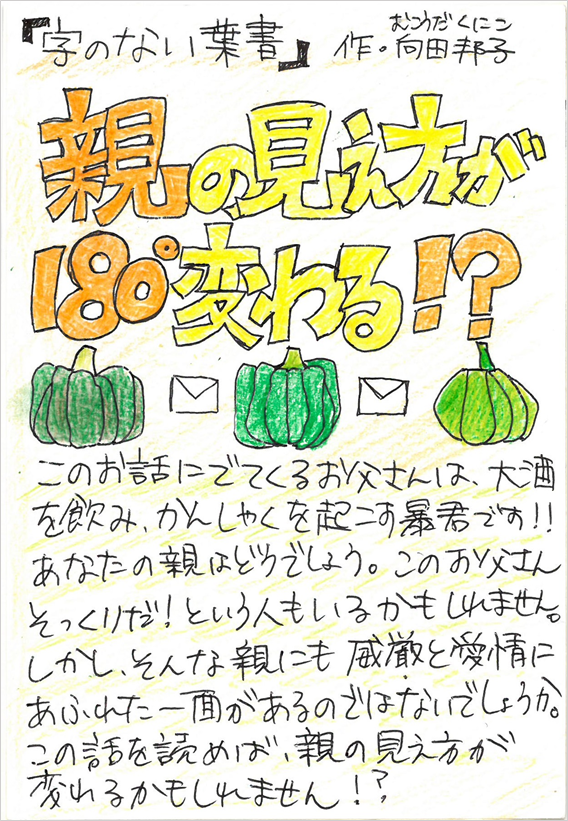 『字のない葉書』 作・向田邦子
むこうだくにこ
親の見え方が
180°変わる!?
このお話にでてくるお父さんは、大酒
を飲み、かんしゃくを起こす暴君です!!
あなたの親はどうでしょう。このお父さん
そっくりだ!という人もいるかもしれません。
しかし、そんな親にも威厳と愛情に
あふれた一面があるのではないでしょうか。
この話を読めば、親の見え方が
変わるかもしれません!?